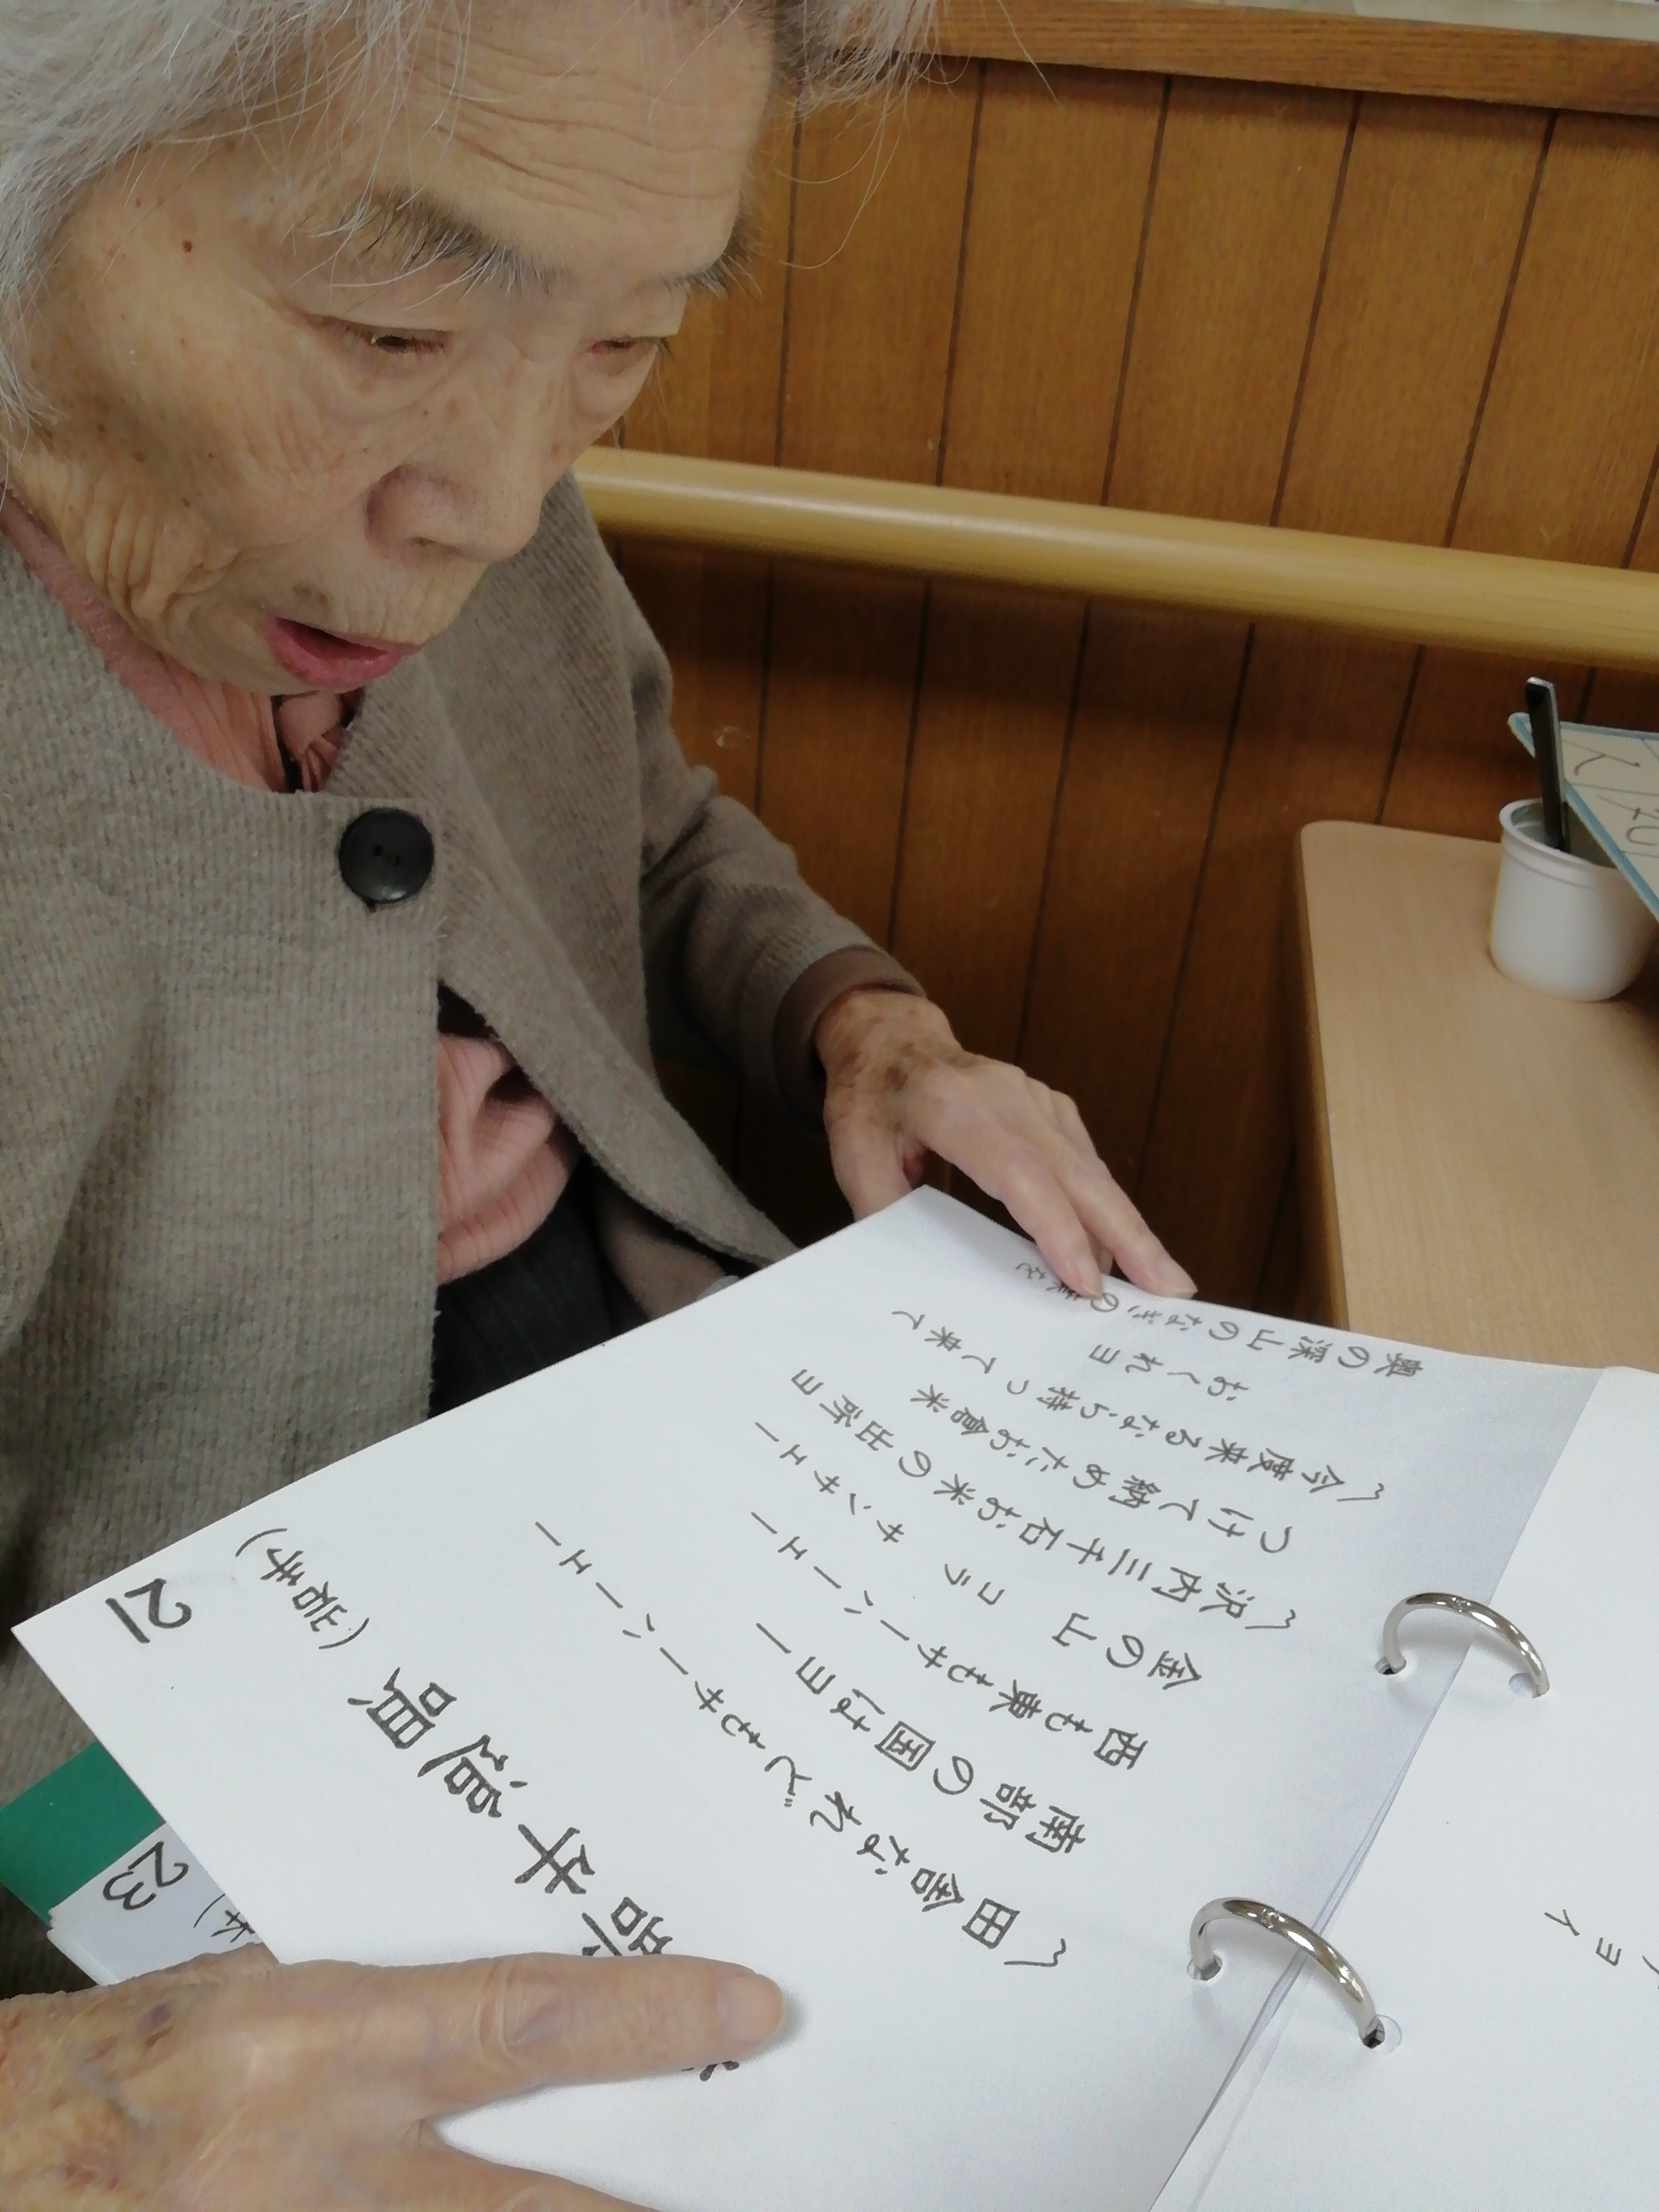 21
部牛追唄 (岩手)
〽田舎なれどもサーハーエー
南部の国はヨー
西も東もサーハーエー
金の山 コラ サンサエー
〽沢内三千石お米の出所ヨ
つけて納めたお倉米
〽今度来るなら持って来て
おくれヨ
奥の深山のなぎの葉を
23